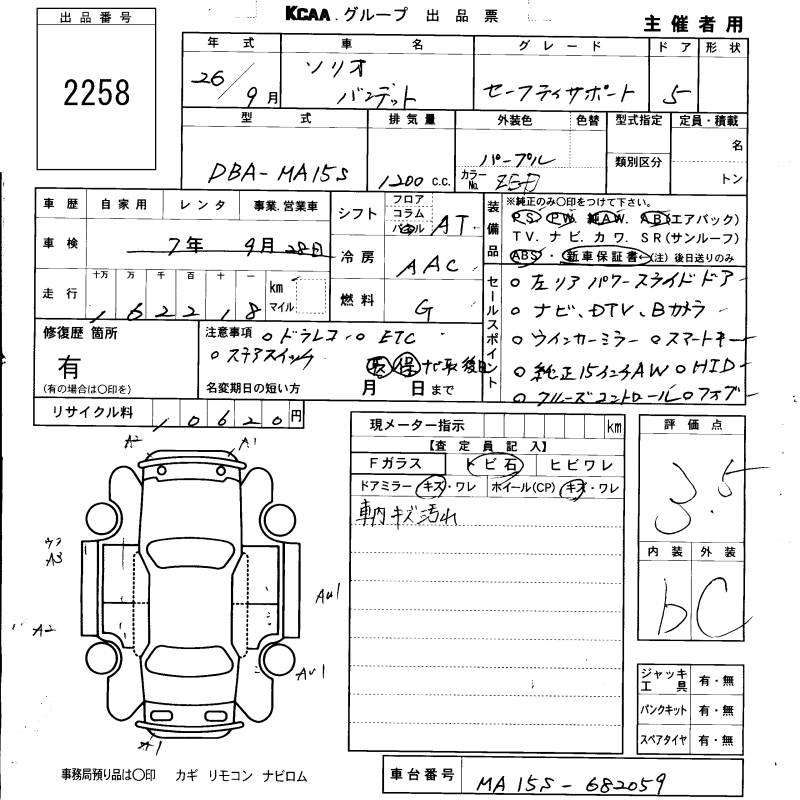 KCAA グループ 出品票
主催者用
出品番号
2258
年式 車名 グレード ドア 形状
26/9月 ソリオ バンデット セーフティサポート 5
型式 排気量 外装色 色替 型式指定 定員・積載
DBA-MA15S 1200 c.c. パープル 類別区分 名
カラーNo. ZED トン
車歴 自家用 レンタ 事業.営業車
車検 7年 9月 28日
走行 十万 万 千 百 十 一 km マイル
1 6 2 2 1 8
シフト フロア コラム AT
冷房 AAC
燃料 G
装備品
※純正のみ〇印をつけて下さい。
PS PW 純AW. AB(エアバック)
TV. ナビ. カワ. SR(サンルーフ)
ABS・新車保証書←(注)後日送りのみ
セールスポイント
○ 左リアパワースライドドア
○ ナビ、DTV、Bカメラ
○ ウインカーミラー ○ スマートキー
○ 純正15インチAW ○ HID
○ クルーズコントロール ○ フォグ
修復歴 箇所
有
(有の場合は〇印を)
注意事項 ○ ドラレコ ○ ETC
○ ステアスイッチ
取 保 ナビ取 後日
名変期日の短い方 月 日まで
リサイクル料 10620円
現メーター指示 km
【査定員記入】
Fガラス トビ石 ヒビワレ
ドアミラー キズ・ワレ ホイール(CP) キズ・ワレ
車内キズ汚れ
評価点
3.5
内装 外装
b C
A2 A1
ウラ
A3
AU1
A2
AU1
A1
ジャッキ工具 有・無
パンクキット 有・無
スペアタイヤ 有・無
事務局預り品は〇印 カギ リモコン ナビロム
車台番号 MA15S-682059